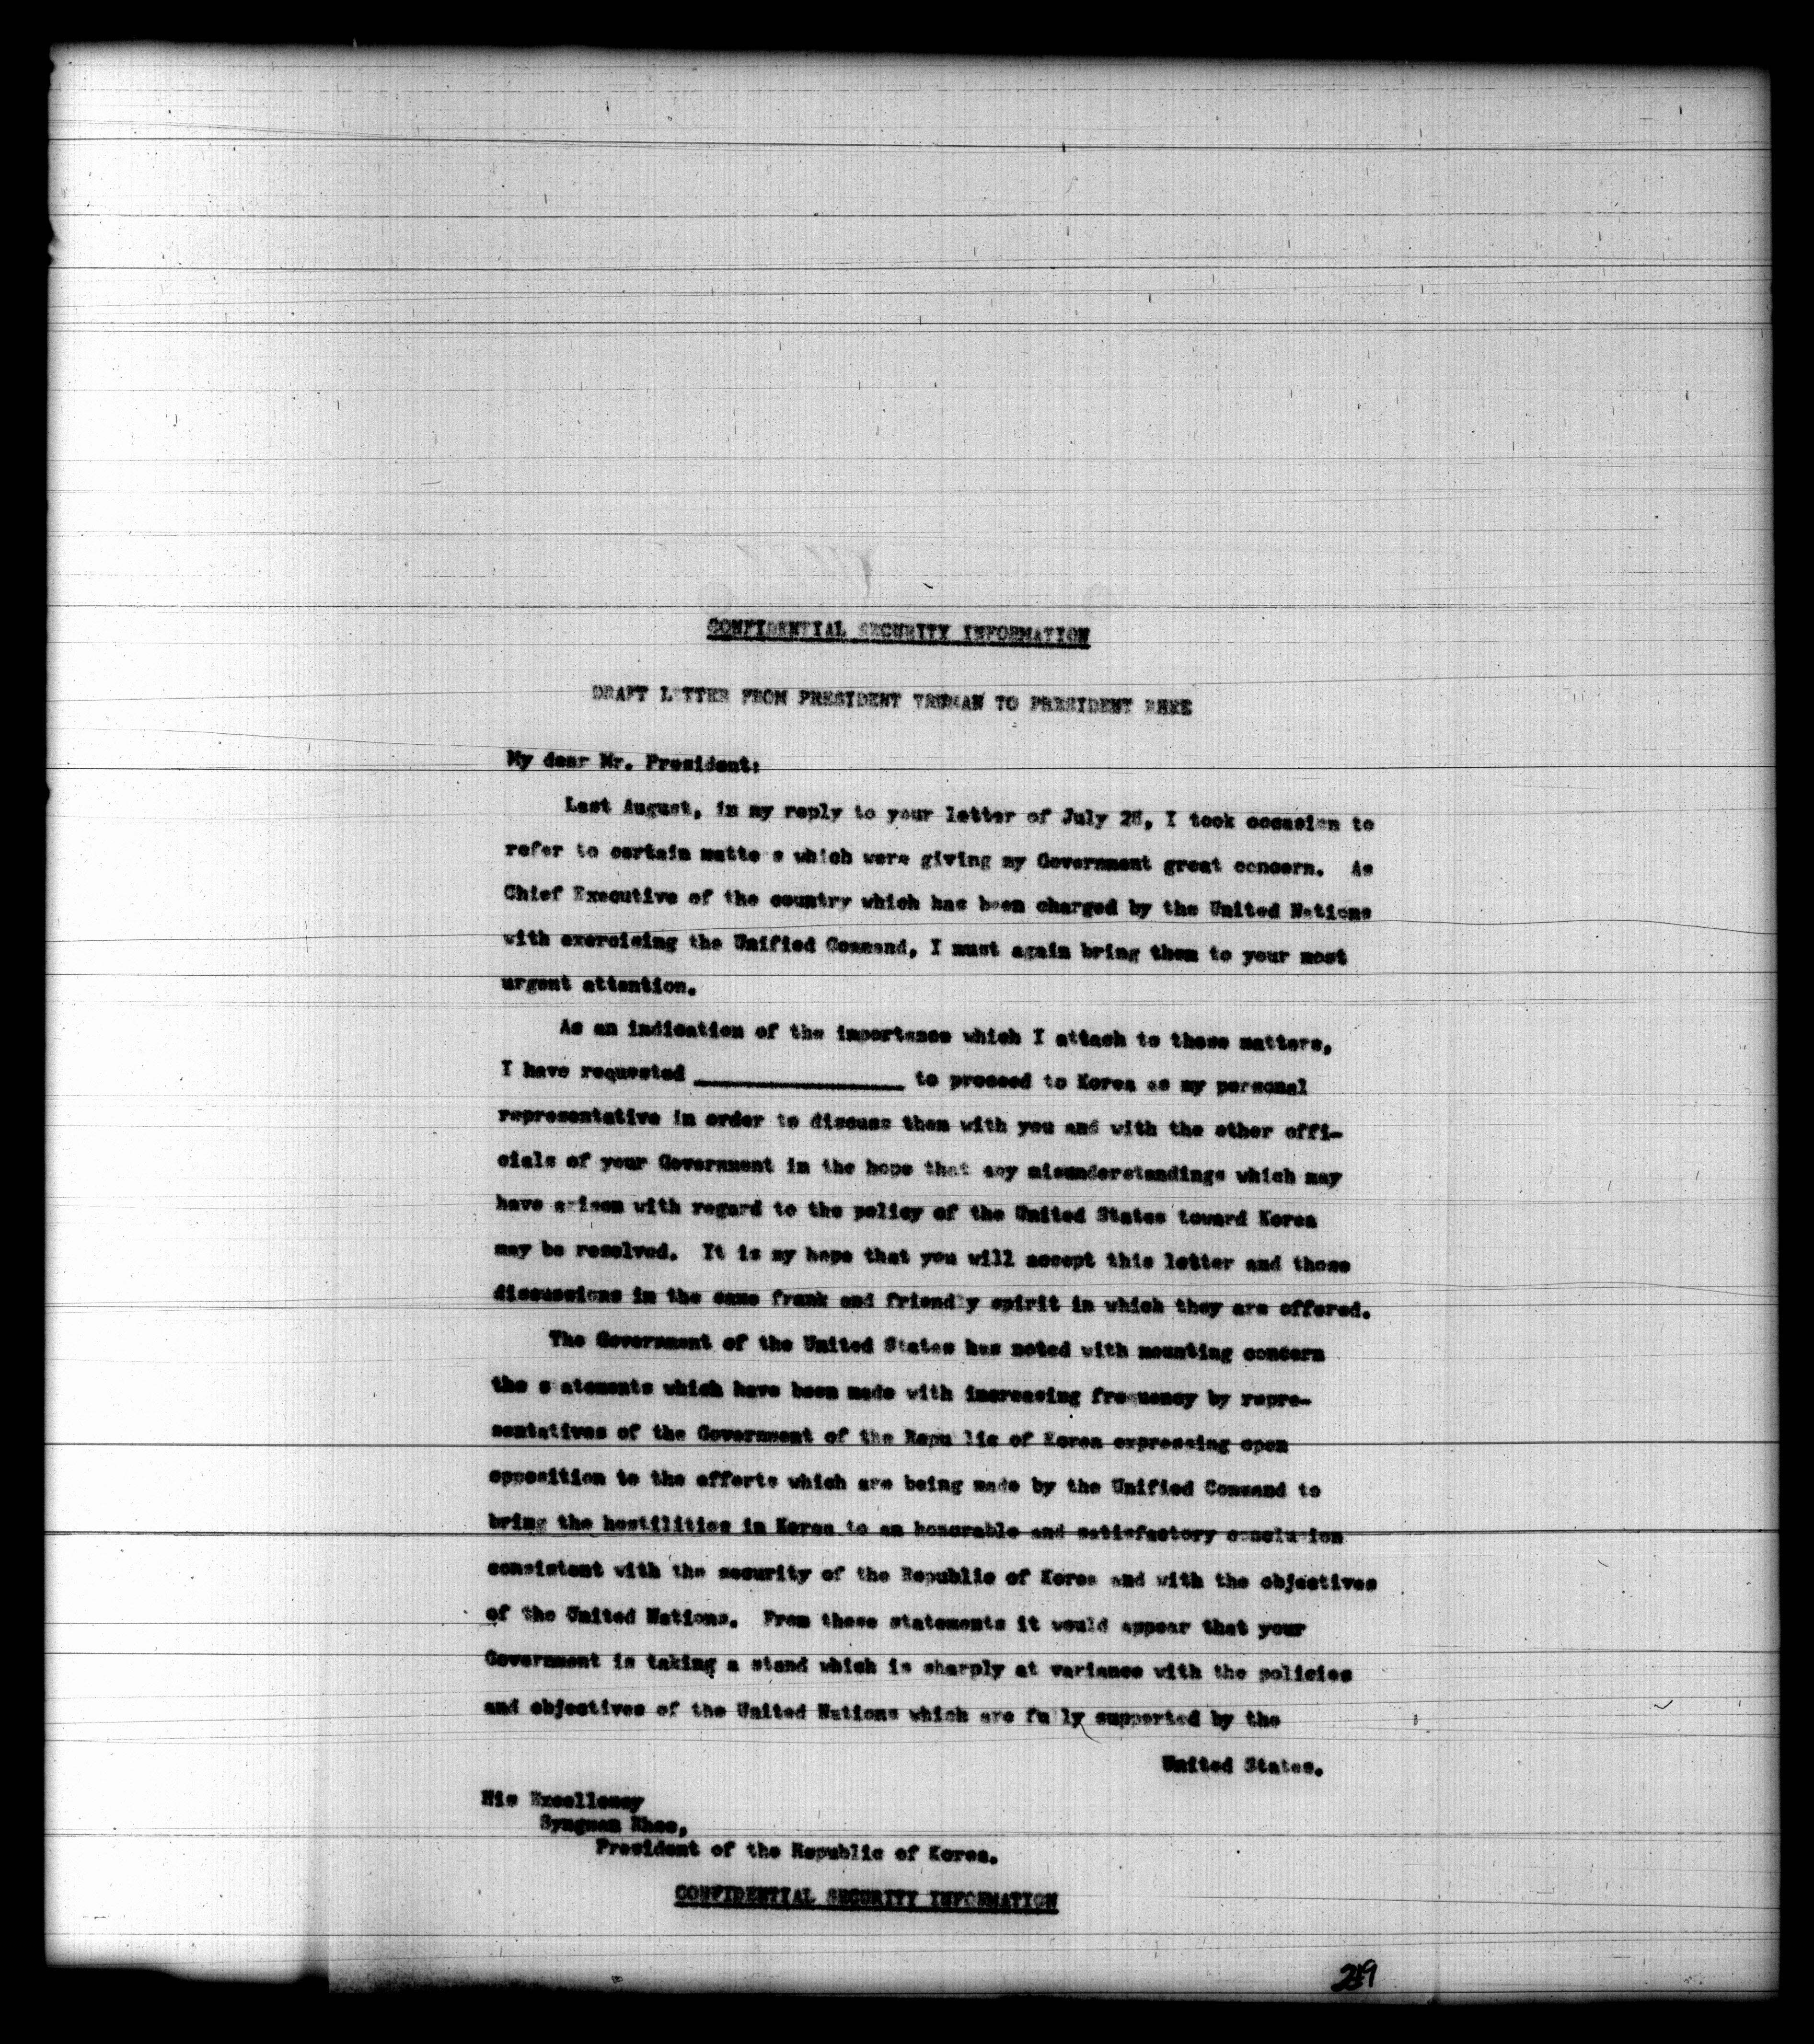 CONFIDENTIAL SECURITY INFORMATION
DRAFT LETTER FROM PRESIDENT TRUMAN TO PRESIDENT RHEE
My dear Mr. President:
Last August, in my reply to your letter of July 28, I took occasion to
refer to certain matte s which were giving my Government great concern. As
Chief Executive of the country which has been charged by the United Nations
with exercising the Unified Command, I must again bring them to your most
urgent attention.
As an indication of the importance which I attach to these matters,
I have requested ____________________ to proceed to Korea as my personal
representative in order to discuss them with you and with the other offi-
cials of your Government in the hope that any misunderstandings which may
have arisen with regard to the policy of the United States toward Korea
may be resolved. It is my hope that you will accept this letter and those
discussions in the same frank and friendly spirit in which they are offered.
The Government of the United States has noted with mounting concern
the s atements which have been made with increasing frequency by repre-
sentatives of the Government of the Repu lic of Korea expressing open
opposition to the efforts which are being made by the Unified Command to
bring the hostilities in Korea to an honorable and satisfactory conclusion
consistent with the security of the Republic of Korea and with the objectives
of the United Nations. From these statements it would appear that your
Government is taking a stand which is sharply at variance with the policies
and objectives of the United Nations which are fu ly supported by the
United States.
His Excellency
Syngman Rhee,
President of the Republic of Korea.
CONFIDENTIAL SECURITY INFORMATION